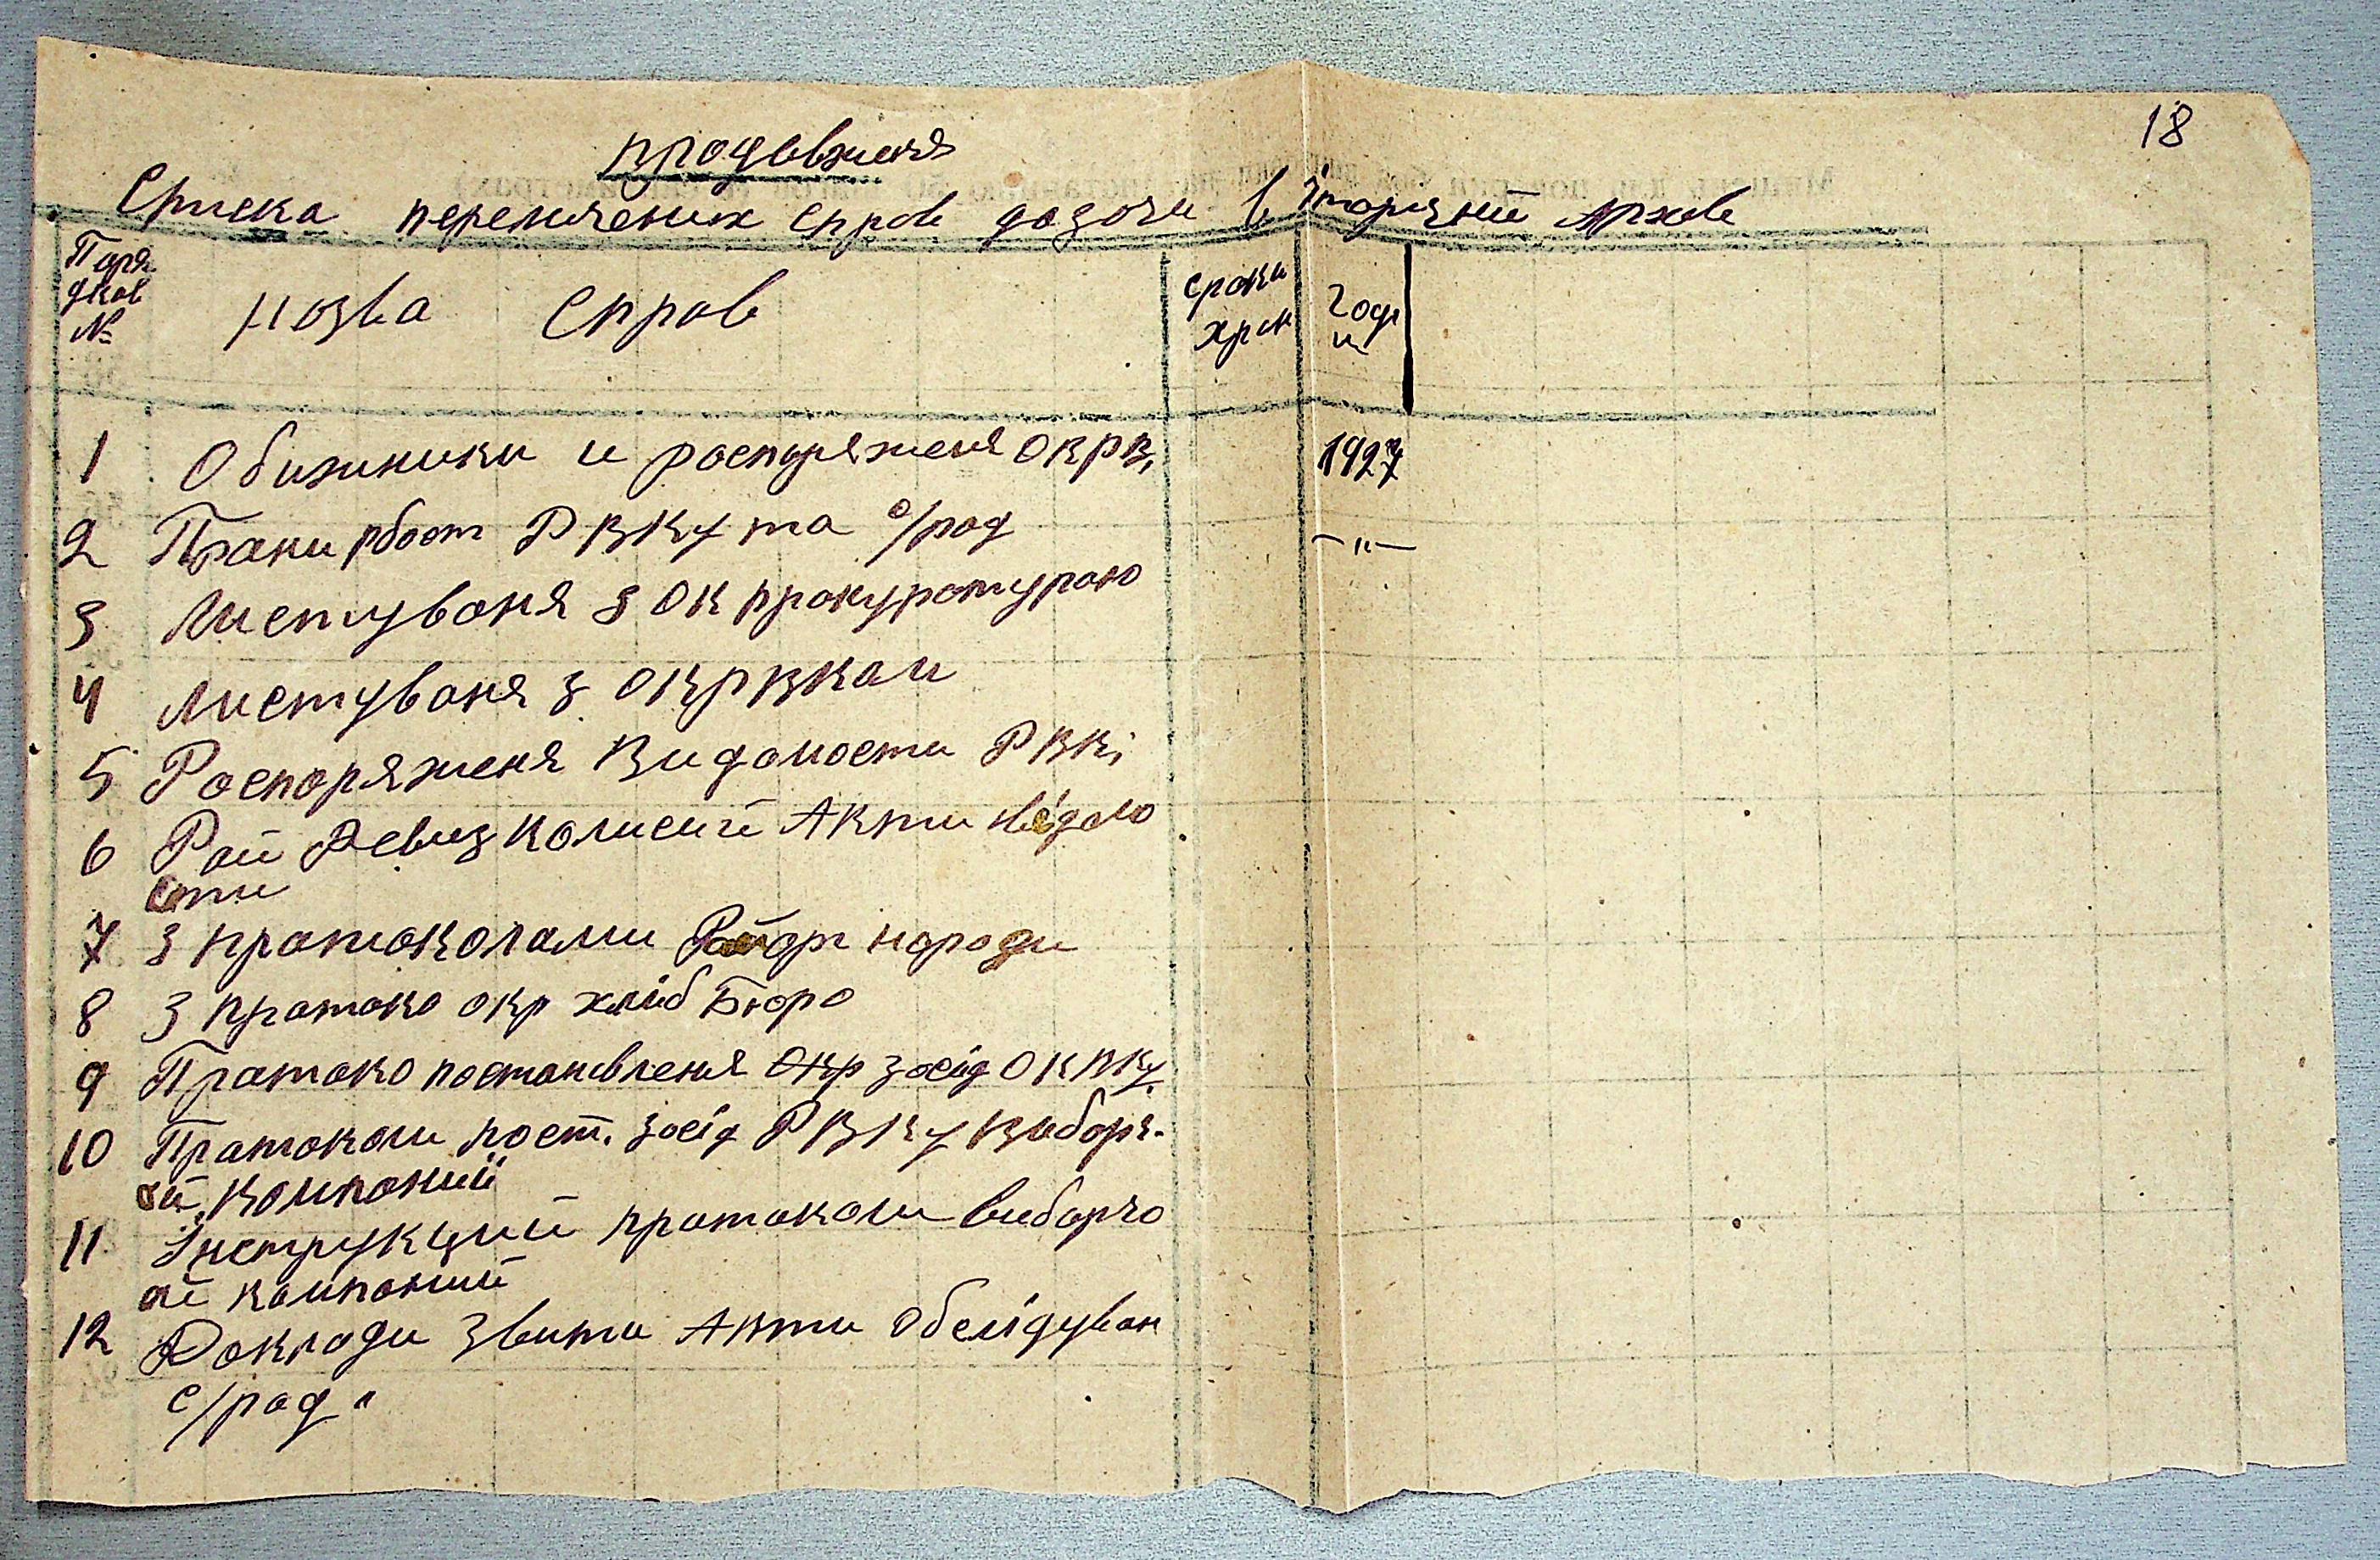 18
продовженя
Списка перемічених справ дозочи в їторичний Архів
Поря
дков
№
Назва Справ
сроки
хрон
годи
1 Обижники и роспоряженя ОКРВ,
1927
2 Плани рбот РВКу та с/рад
-"-
3 Листуваня з ОК прокуратурою
4 Листуваня з ОКРВКом
5 Роспоряженя Видомости РВК,
6 Рай Ревиз Комисий Акти відомо
сти
7 З протоколами Райорг народи
8 З протоко окр хліб Бюро
9 Протоко постановленя Окр засід ОКВКу
10 Протоколи пост. засід РВКу Виборч.
ой Компоний
11 Інструкций протоколи виборчо
ой компоний
12 Доклади Звити Акти Обслідуван
с/рад.